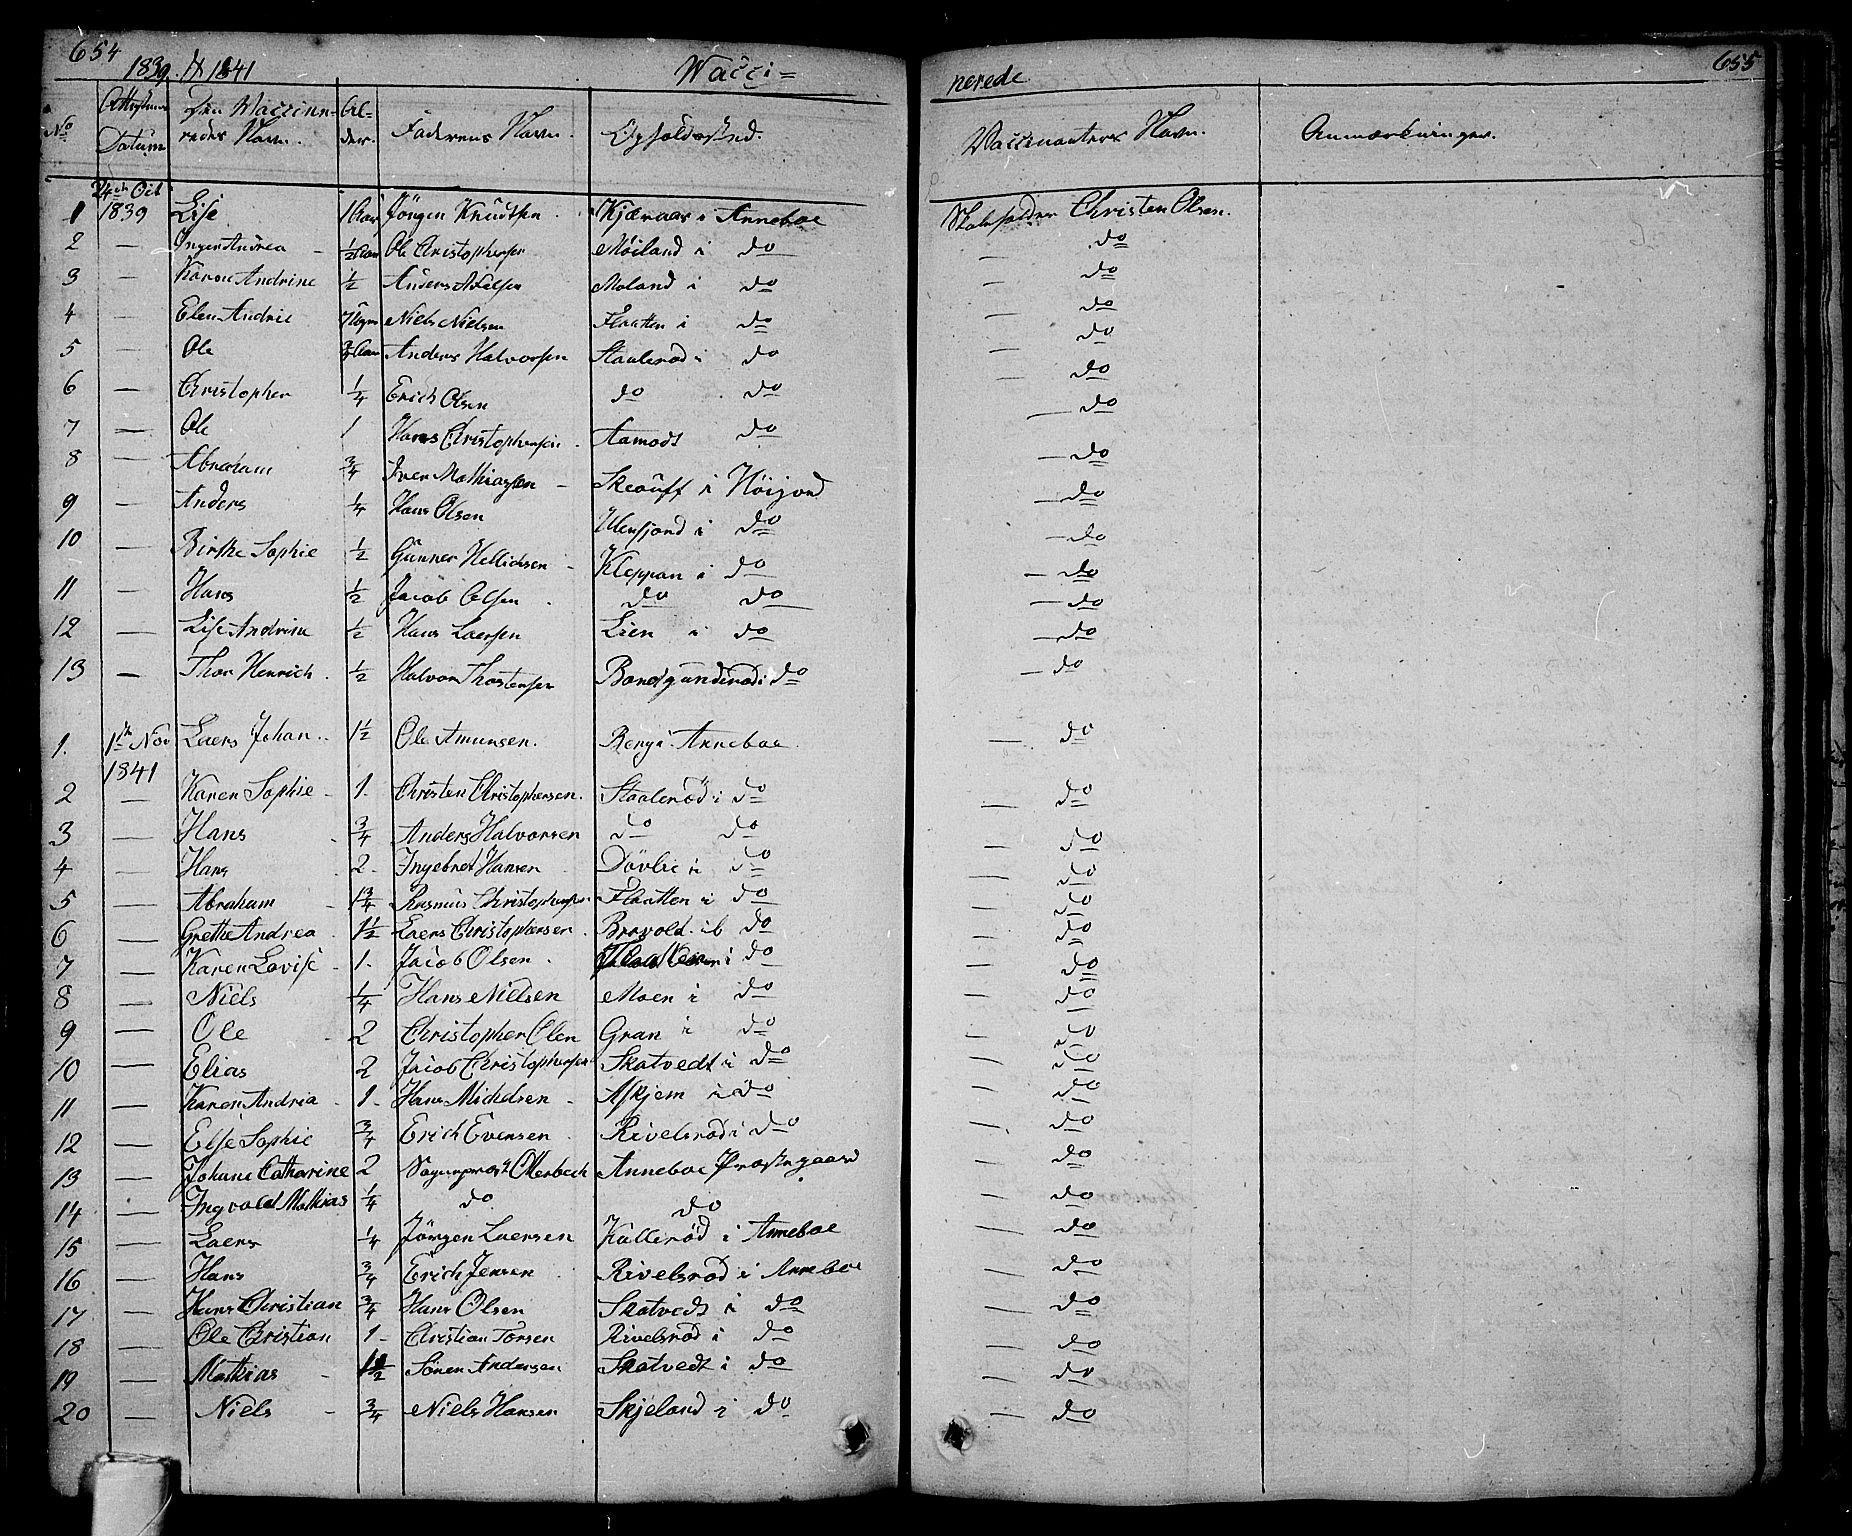 654 1839. & 1841 Wacci= nerede 655
No Attestens Datum Den Vaccine= redes Navn. Al= der. Faderens Navn. Opholdsted. Vaccinanters Navn. Anmærkninger.
24de Oct
1 1839 Lise 1 Aar Jörgen Knudsen. Kjæraas i Anneboe Skoleholder Christen Olsen.
2 — Inger Andrea - 1/2 Aar Ole Christophersen Möiland i do — do
3 — Karen Andrine 1/2 Anders Moland i do — do
4 — Elen Andrie Niels Nielsen Flaatten i do — do
5 — Ole Anders Halvorsen Staalerød i do — do
6 — Christopher 1/4 Erich Olsen do do — do
7 — Ole 1 Hans Christophersen. Aamodt do — do
8 — Abraham 3/4 Iver Mathiassen - i Höijord — do
9 — Anders 1/4 Hans Olsen i do — do
10 — Birthe Sophie 1/2 Gunner Hellichsen - Kleppan i do — do
11 — Hans 1/2 Jacob Olsen. do do — do
12 — Lise Andrine 1/2 Hans Laersen Lien i do — do
13 — Thor Henrich. 1/2 Halvor Thostensen i do — do
1. 1ste Nov 1841 Laers Johan.. 1 1/2 Ole Amunsen. Berg i Anneboe. — do
2 — Karen Sophie - 1. Christen Christophersen. Staalerød i do — do
3 — Hans - 3/4 Anders Halvorsen do do — do
4 — Hans. 2. Ingebret Hansen Dövlie i do — do
5 — Abraham - 1 3/4 Rasmus Christophersen Flaatten i do — do
6 — Grethe Andrea. 1 1/2 Laers Christophersen. do — do
7 — Karen Lovise - 1. Jacob Olsen. i do — do
8 — Niels 1/4 Hans Nielsen Moen i do — do
9 — Ole - 2 Christopher Olsen Gran i do — do
10 — Elias 2 Jacob Christophersen Skatvedt i do — do
11 — Karen Andria - 1 - Hans Michelsen - Askjem i do — do
12 — Else Sophie 3/4 Erich Evensen. Rivelsrød i do — do
13 — Johane Catharine 2 Sogneprest Otterbech Anneboe Præstegaard — do
14 — Ingvald Mathias 1/4 do. do — do
15 — Laers 1/4 Jörgen Laersen Kallerød i Anneboe — do
16 — Hans 3/4 Erich Jensen. Rivelsrød i Anneboe — do
17 — Hans Christian 3/4 Hans Olsen Skatvedt i do — do
18 — Ole Christian 1 - Christian Torsen Rivelsrød i do — do
19 — Mathias - 1 1/2 Sören Andersen Skatvedt i do — do
20 — Niels - 3/4 Niels Hansen Skjeland i do — do